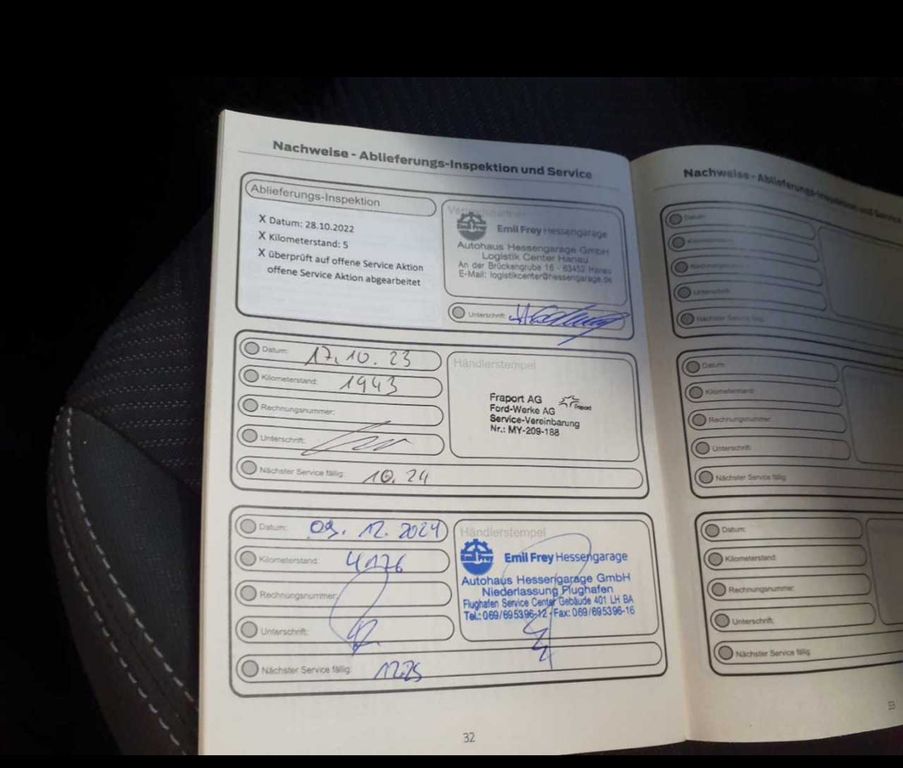 Nachweise - Ablieferungs-Inspektion und Service
Ablieferungs-Inspektion
X Datum: 28.10.2022
X Kilometerstand: 5
X überprüft auf offene Service Aktion
offene Service Aktion abgearbeitet
Emil Frey Hessengarage
Autohaus Hessengarage GmbH
Logistik Center Hanau
An der Brückengrube 16 - 63452 Hanau
E-Mail: logistikcenter@hessengarage.de
Unterschrift:
Datum: 17.10.23
Kilometerstand: 1943
Rechnungsnummer:
Unterschrift:
Nächster Service fällig: 10.24
Händlerstempel
Fraport AG
Fraport
Ford-Werke AG
Service-Vereinbarung
Nr.: MY-209-188
Datum: 09.12.2024
Kilometerstand: 4176
Rechnungsnummer:
Unterschrift:
Nächster Service fällig: 12.25
Händlerstempel
Emil Frey
Emil Frey Hessengarage
Autohaus Hessengarage GmbH
Niederlassung Flughafen
Flughafen Service Center Gebäude 401 LH BA
Tel.: 069/695396-12 - Fax: 069/695396-16
32
Nachweise - Ablieferungs-Inspektion und Service
Datum:
Kilometerstand:
Rechnungsnummer:
Unterschrift:
Nächster Service fällig:
Datum:
Kilometerstand:
Rechnungsnummer:
Unterschrift:
Nächster Service fällig:
Datum:
Kilometerstand:
Rechnungsnummer:
Unterschrift:
Nächster Service fällig:
33